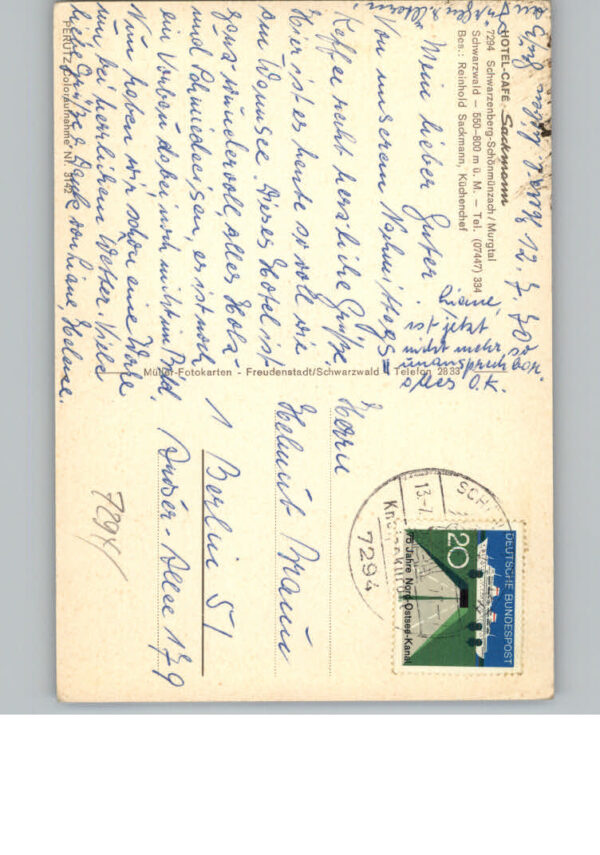 HOTEL-CAFÉ Sackmann
7294 Schwarzenberg-Schönmünzach/Murgtal
Schwarzwald – 550-800 m ü. M. – Tel. (07447) 334
Bes.: Reinhold Sackmann, Küchenchef
12. 7. 70
Meine lieber Guter
Von unserem Nachmittags-
Kaffee recht herzliche Grüße.
Hier ist es heute so voll wie
am Wannsee. Dieses Hotel ist
ganz wundervoll, alles Holz
und Schmiedeeisen, es ist noch
ein Vorbau dabei noch nicht im Bild.
Nun haben wir schon eine Woche
um, bei herrlichem Wetter. Viele
liebe Grüße & Dank von Liane, Helene.
Liane,
ist jetzt
nicht mehr so
unansprechbar
alles O.K.
PERUTZ Coloraufnahme Nr. 3142
Müller-Fotokarten - Freudenstadt/Schwarzwald - Telefon 2833
Herrn
Helmut Braun
1 Berlin 51
Aroser-Allee 179
7294
SCH
13.-7.
7294
DEUTSCHE BUNDESPOST
20
75 Jahre Nord-Ostsee-Kanal